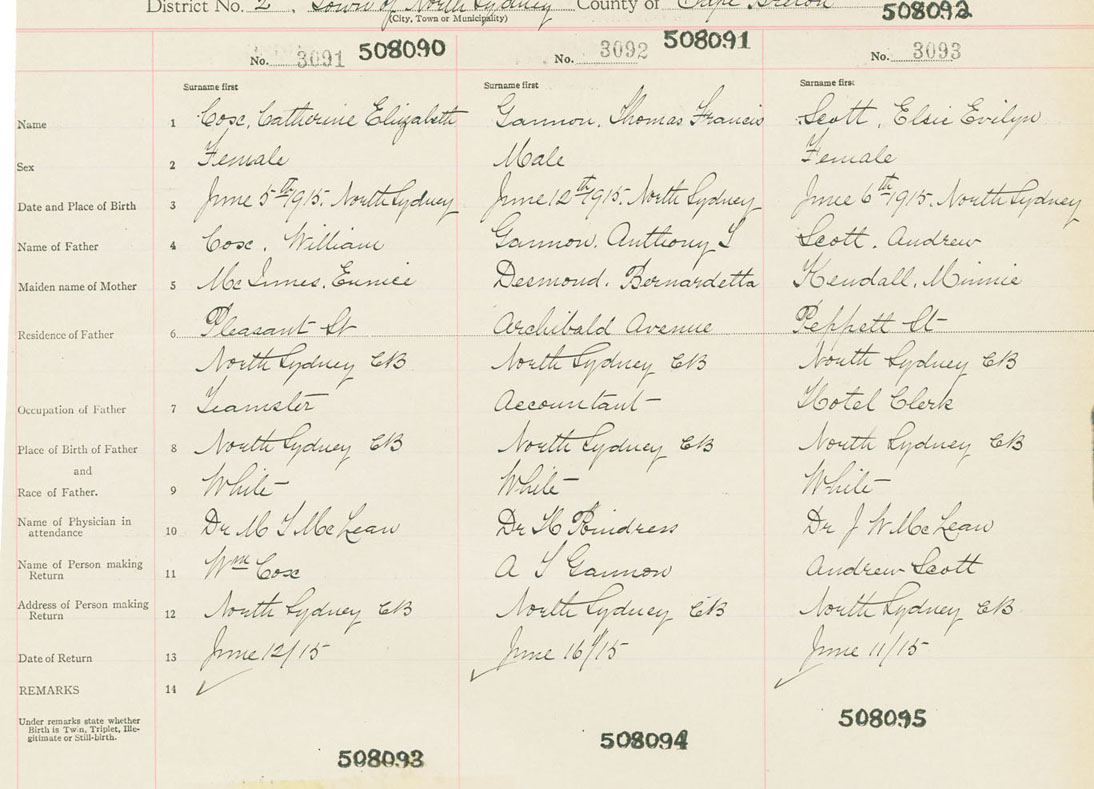 District No. 2, Town of North Sydney County of Cape Breton
(City, Town or Municipality)
508092
No. 3091 508090 No. 3092 508091 No. 3093
Surname first Surname first Surname first
Name 1 Cox, Catherine Elizabeth Gannon, Thomas Francis Scott, Elsie Evilyn
Sex 2 Female Male Female
Date and Place of Birth 3 June 5th 1915. North Sydney June 12th 1915. North Sydney June 6th 1915. North Sydney
Name of Father 4 Cox, William Gannon, Anthony S Scott, Andrew
Maiden name of Mother 5 McInnes, Eunice Desmond, Bernardetta Kendall, Minnie
Residence of Father 6 Pleasant St Archibald Avenue Peppett St
North Sydney CB North Sydney CB North Sydney CB
Occupation of Father 7 Teamster Accountant Hotel Clerk
Place of Birth of Father 8 North Sydney CB North Sydney CB North Sydney CB
and
Race of Father. 9 White White White
Name of Physician in
attendance 10 Dr M S McLean Dr H Dr J W McLean
Name of Person making
Return 11 Wm Cox A S Gannon Andrew Scott
Address of Person making
Return 12 North Sydney CB North Sydney CB North Sydney CB
Date of Return 13 June 12/15 June 16/15 June 11/15
REMARKS 14
Under remarks state whether
Birth is Twin, Triplet, Ille-
gitimate or Still-birth.
508093 508094 508095